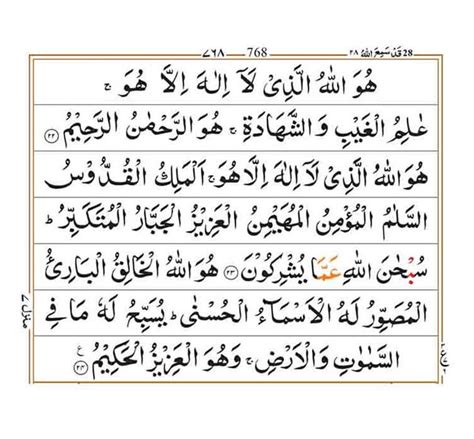 ٧٦٨ 768 ٢٨ قَدْ سَمِعَ اللّٰهُ 28
هُوَ اللّٰهُ الَّذِیْ لَاۤ اِلٰهَ اِلَّا هُوَ ۚ
عٰلِمُ الْغَیْبِ وَ الشَّهَادَةِ ۚ هُوَ الرَّحْمٰنُ الرَّحِیْمُ ﴿٢٢﴾
هُوَ اللّٰهُ الَّذِیْ لَاۤ اِلٰهَ اِلَّا هُوَ ۚ اَلْمَلِكُ الْقُدُّوْسُ
السَّلٰمُ الْمُؤْمِنُ الْمُهَیْمِنُ الْعَزِیْزُ الْجَبَّارُ الْمُتَكَبِّرُ ؕ
سُبْحٰنَ اللّٰهِ عَمَّا یُشْرِكُوْنَ ﴿٢٣﴾ هُوَ اللّٰهُ الْخَالِقُ الْبَارِئُ
الْمُصَوِّرُ لَهُ الْاَسْمَآءُ الْحُسْنٰی ؕ یُسَبِّحُ لَهٗ مَا فِی
السَّمٰوٰتِ وَ الْاَرْضِ ۚ وَ هُوَ الْعَزِیْزُ الْحَكِیْمُ ﴿٢٤﴾ ع
منزل ٧